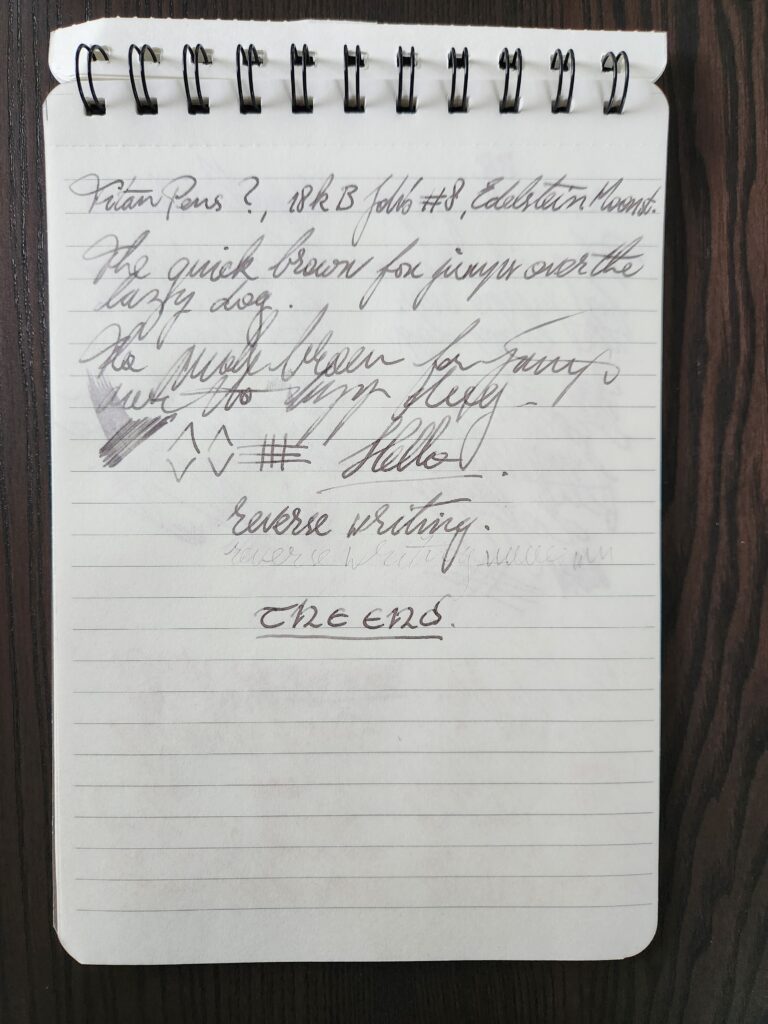 Titan Pens ?, 18k B JoWo #8, Edelstein Moonst.
The quick brown fox jumps over the
lazy dog.
The quick brown fox jumps
over the dog
Hello
reverse writing.
reverse writing
THE END.